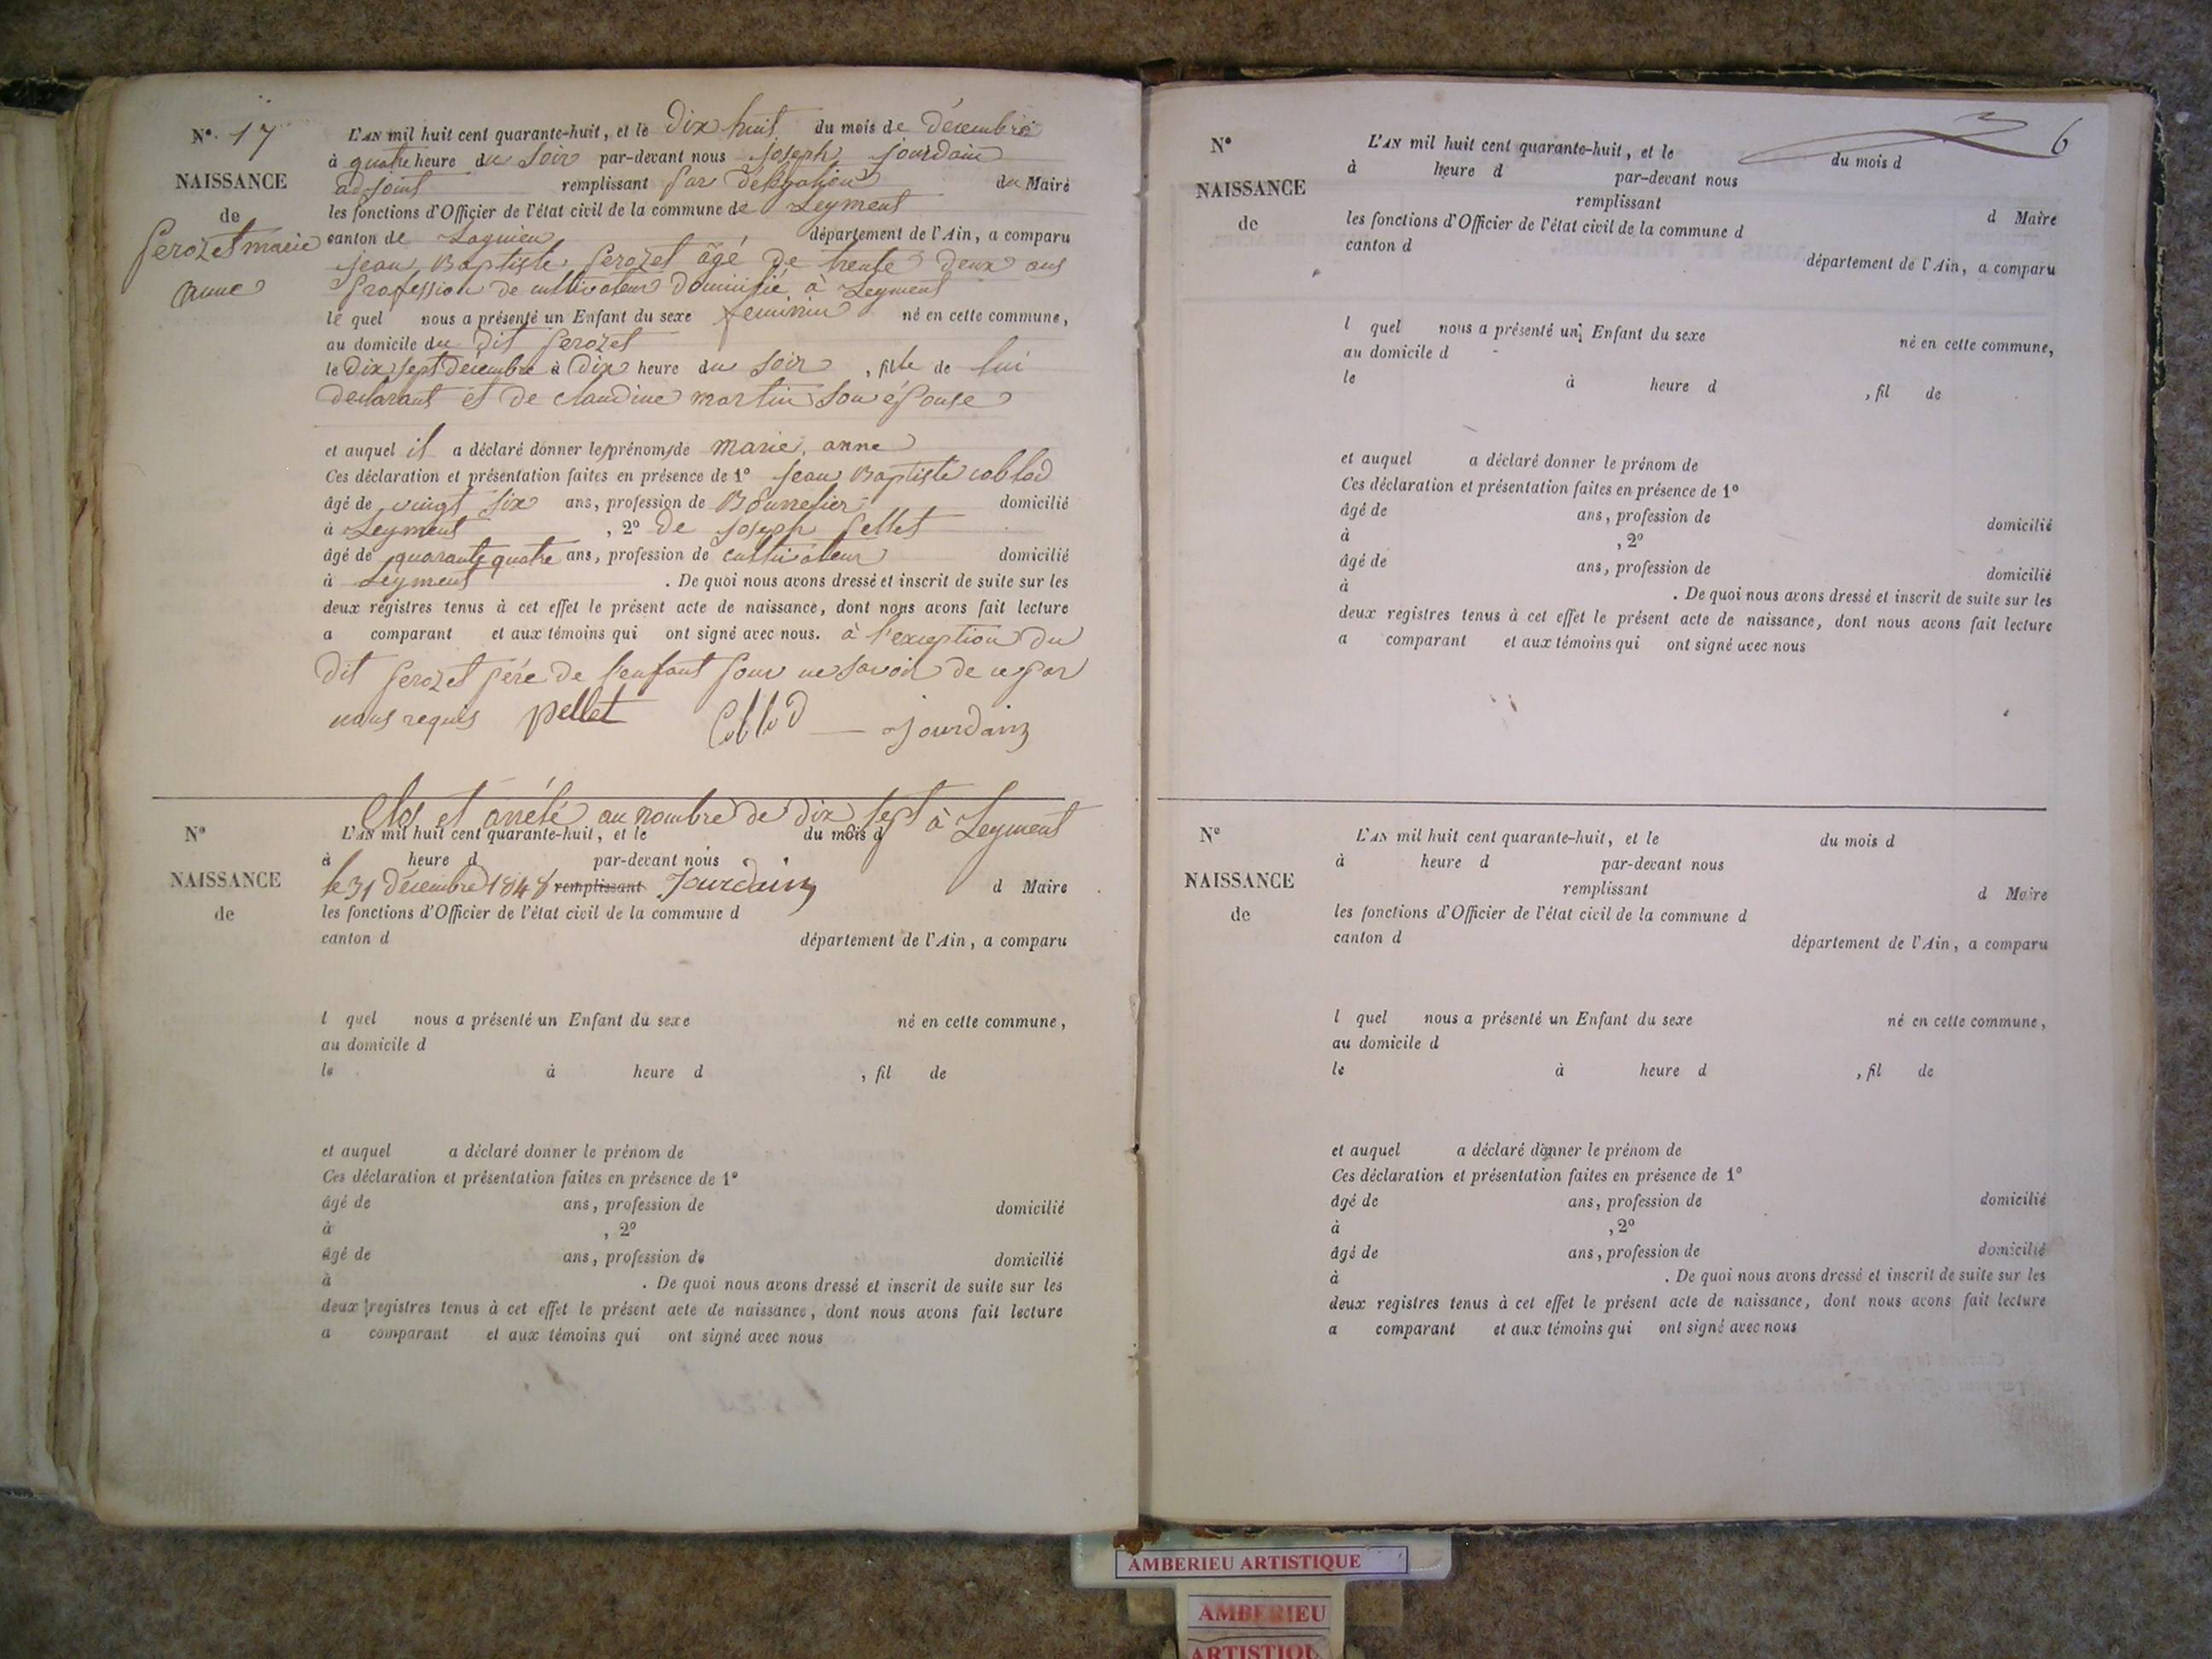 N° 17
NAISSANCE
de
Perozet marie
anne
L'AN mil huit cent quarante-huit, et le dix huit du mois de décembre
à quatre heure du soir par-devant nous joseph jourdain
adjoint remplissant par délégation du Maire
les fonctions d'Officier de l'état civil de la commune de Leyment
canton de Lagnieu département de l'Ain, a comparu
jean Baptiste Perozet âgé de trente deux ans
profession de cultivateur domicilié à Leyment
le quel nous a présenté un Enfant du sexe feminin né en cette commune,
au domicile du dit Perozet
le dix sept décembre à dix heure du soir, fille de lui
declarant et de claudine martin son épouse
et auquel il a déclaré donner les prénoms de marie, anne
Ces déclaration et présentation faites en présence de 1° jean Baptiste collod
âgé de vingt six ans, profession de Bourrelier domicilié
à Leyment, 2° de joseph pellet
âgé de quarante quatre ans, profession de cultivateur domicilié
à Leyment. De quoi nous avons dressé et inscrit de suite sur les
deux registres tenus à cet effet le présent acte de naissance, dont nous avons fait lecture
a comparant et aux témoins qui ont signé avec nous. à l'exception du
dit Perozet pére de l'enfant pour ne savoir de ce par
nous requis pellet Collod jourdain
Clos et arrêté au nombre de dix sept à Leyment
N°
L'AN mil huit cent quarante-huit, et le du mois d
à heure d par-devant nous
NAISSANCE
le 31 décembre 1848 remplissant Jourdain d Maire
de
les fonctions d'Officier de l'état civil de la commune d
canton d département de l'Ain, a comparu
l quel nous a présenté un Enfant du sexe né en cette commune,
au domicile d
le à heure d , fil de
et auquel a déclaré donner le prénom de
Ces déclaration et présentation faites en présence de 1°
âgé de ans, profession de domicilié
à , 2°
âgé de ans, profession de domicilié
à . De quoi nous avons dressé et inscrit de suite sur les
deux registres tenus à cet effet le présent acte de naissance, dont nous avons fait lecture
a comparant et aux témoins qui ont signé avec nous
6
N°
L'AN mil huit cent quarante-huit, et le du mois d
à heure d par-devant nous
NAISSANCE
remplissant d Maire
de
les fonctions d'Officier de l'état civil de la commune d
canton d département de l'Ain, a comparu
l quel nous a présenté un Enfant du sexe né en cette commune,
au domicile d
le à heure d , fil de
et auquel a déclaré donner le prénom de
Ces déclaration et présentation faites en présence de 1°
âgé de ans, profession de domicilié
à , 2°
âgé de ans, profession de domicilié
à . De quoi nous avons dressé et inscrit de suite sur les
deux registres tenus à cet effet le présent acte de naissance, dont nous avons fait lecture
a comparant et aux témoins qui ont signé avec nous
N°
L'AN mil huit cent quarante-huit, et le du mois d
à heure d par-devant nous
NAISSANCE
remplissant d Maire
de
les fonctions d'Officier de l'état civil de la commune d
canton d département de l'Ain, a comparu
l quel nous a présenté un Enfant du sexe né en cette commune,
au domicile d
le à heure d , fil de
et auquel a déclaré donner le prénom de
Ces déclaration et présentation faites en présence de 1°
âgé de ans, profession de domicilié
à , 2°
âgé de ans, profession de domicilié
à . De quoi nous avons dressé et inscrit de suite sur les
deux registres tenus à cet effet le présent acte de naissance, dont nous avons fait lecture
a comparant et aux témoins qui ont signé avec nous
AMBERIEU ARTISTIQUE
AMBERIEU
ARTISTIQU